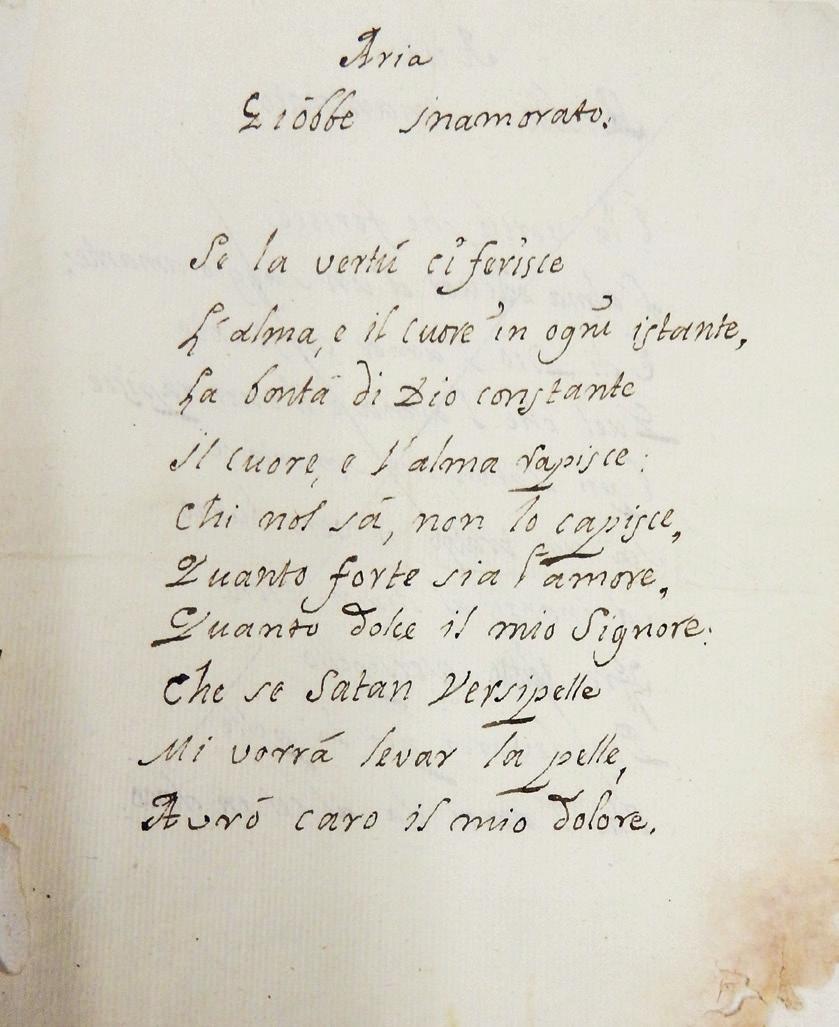 Aria
Gióbbe inamorato.
Se la vertú ci ferisce
L'alma, e il cuore in ogni istante,
La bontá di Dio constante
Il cuore, e l'alma rapisce:
Chi nol sá, non lo capisce,
Quanto forte sia l'amore,
Quanto dolce il mio Signore:
Che se Satan Versipelle
Mi vorrá levar la pelle,
Avró caro il mio dolore.